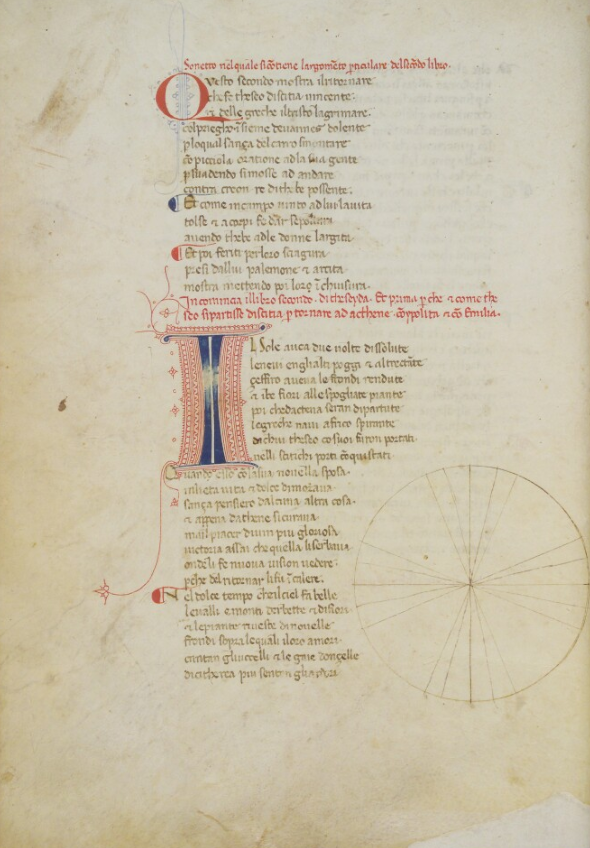 Sonetto nel quale si cõtiene largomẽto ꝑticulare del secõdo libro.
Questo secondo mostra il ritornare
che fe theseo di scitia uincente.
& delle greche il tristo lagrimare.
col priegho insieme de uannes dolente
ꝑlo qual sança del carro smontare
cõ picciola oratione ad la sua gente
ꝑsuadendo si mosse ad andare
contra creon re di thebe possente.
Et come in campo uinto ad lui la uita
tolse & a corpi fe dar sepoltura
auendo thebe ad le donne largita.
Et poi feriti per loro sciagura
presi da llui palemone & arcita
mostra mettendo poi loro ĩ chiusura.
Incomincia il libro secondo di theseyda. Et prima ꝑche & come the
seo si partisse di scitia ꝑ tornare ad acthene cõ ypolita & cõ Emilia.
Il Sole auea due uolte dissolute
le neui en gli alti poggi &
çeffiro aueua le frondi rendute
& i be fiori alle spogliate piante
poi che dactena seran dipartute
le greche naui africo spirante
di chui theseo co suoi furon portati
nelli scitichi porti cõquistati.
Quando esso colalta nouella sposa
in lieta uita & dolce dimoraua
sança pensiero dalcuna altra cosa.
& appena dathene si curaua.
mail piacer diuin piu gloriosa
uictoria assai che quella li serbaua
onde li fe nuoua uision uedere.
ꝑche del ritornar li fu ĩ calere.
Nel dolce tempo cheil ciel fa belle
le ualli e monti derbette & di fiori
& le piante riueste di nouelle
frondi sopra le quali i loro amori
cantan gli uccelli & le gaie donçelle
di citherea piu senton gli ardori